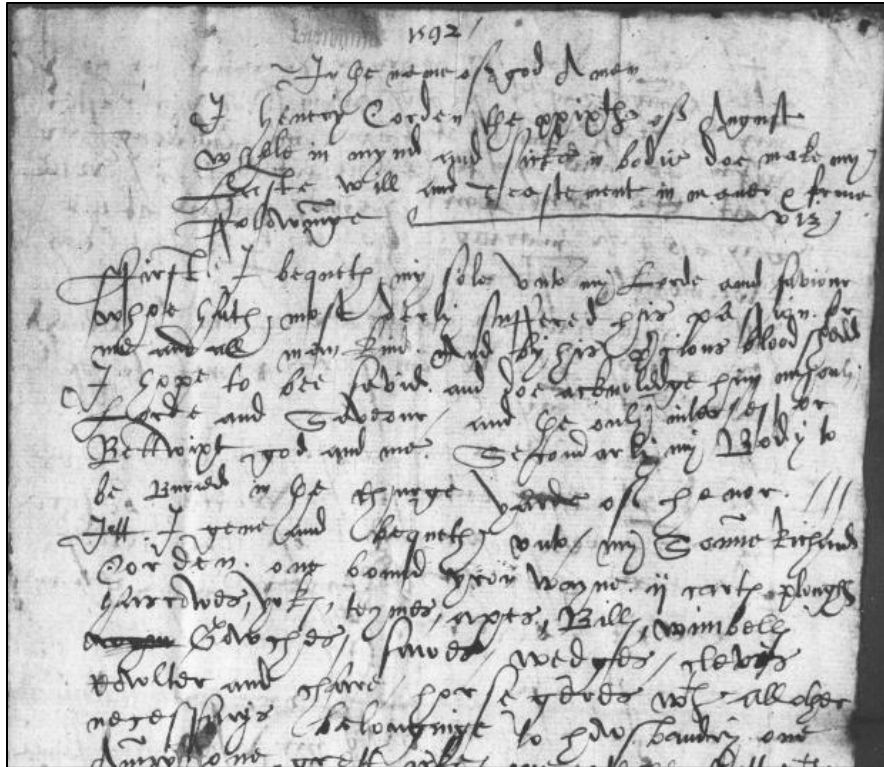 1592
In the name of god Amen
I Henry Corden the xxixth of August
whole in mynd and sicke in bodie doe make my
Laste will and Teastement in maner & forme
Followinge viz
First I bequeth my sole unto my Lorde and saviour
whose hath most derly suffered his passion for
me and all man kind. And by his blood shedd
I hope to bee savid. and doe acknowlidge him my only
Lorde and Saveour and the only intersessor
Bettwixt god and me. Secondarly my Body to
be Buried in the churge yarde of henor.
Itt. I geve and bequeth unto my Sonne Richard
Corden. one bound yron wayne. ij cartes plougs
harrowes, yoks, teymes, axes, Bill, wimbell
sawes, wedges, clevis
and horse geres wth all other
necessarys belonginge to howsbandry one
one grett